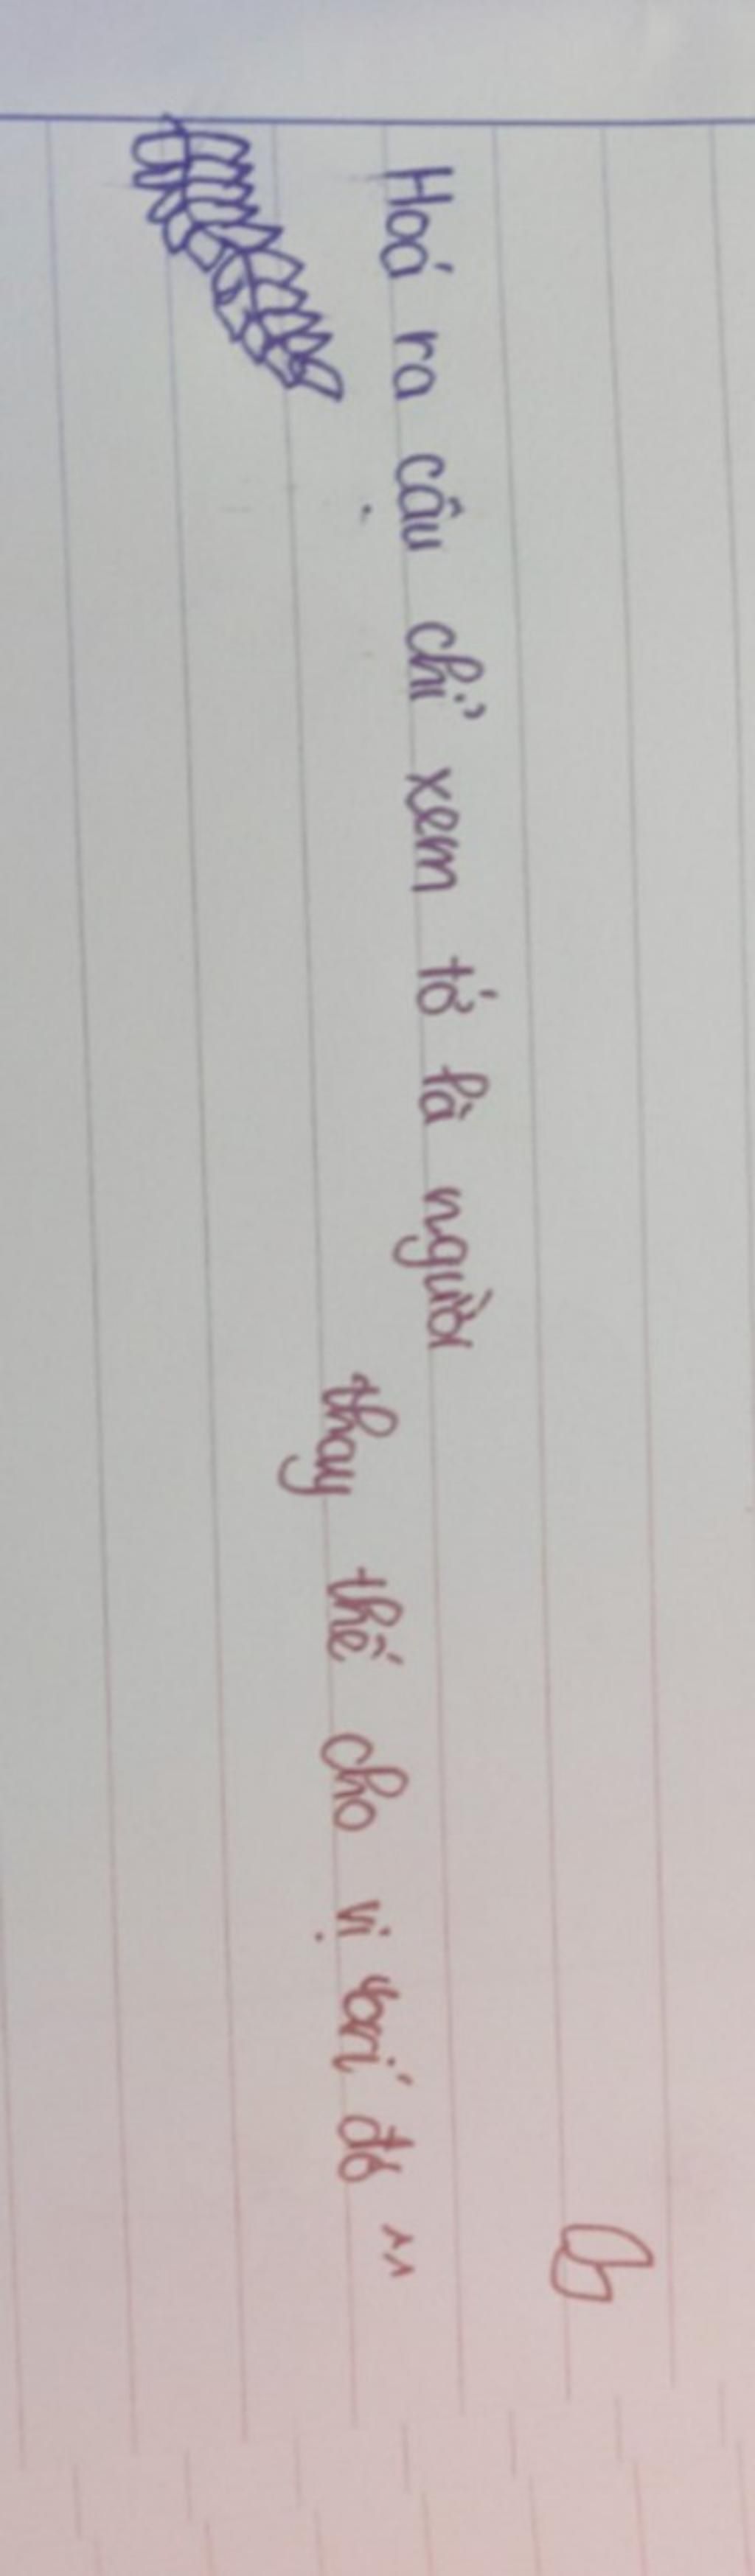 Hoá ra cậu chỉ xem tớ là người
thay thế cho vị trí đó "